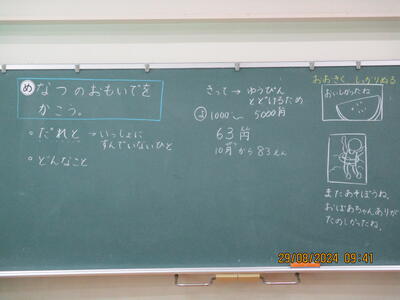 め なつのおもいでを
かこう。
○ だれと → いっしょに
すんでいないひと
○ どんなこと
きって → ゆうびん
とどけるため
1000〜5000円
63円
10月から83えん
おおきく しっかりぬる
おいしかったね
またあそぼうね。
おばあちゃんありが
たのしかったね。
29/08/2024 09:41